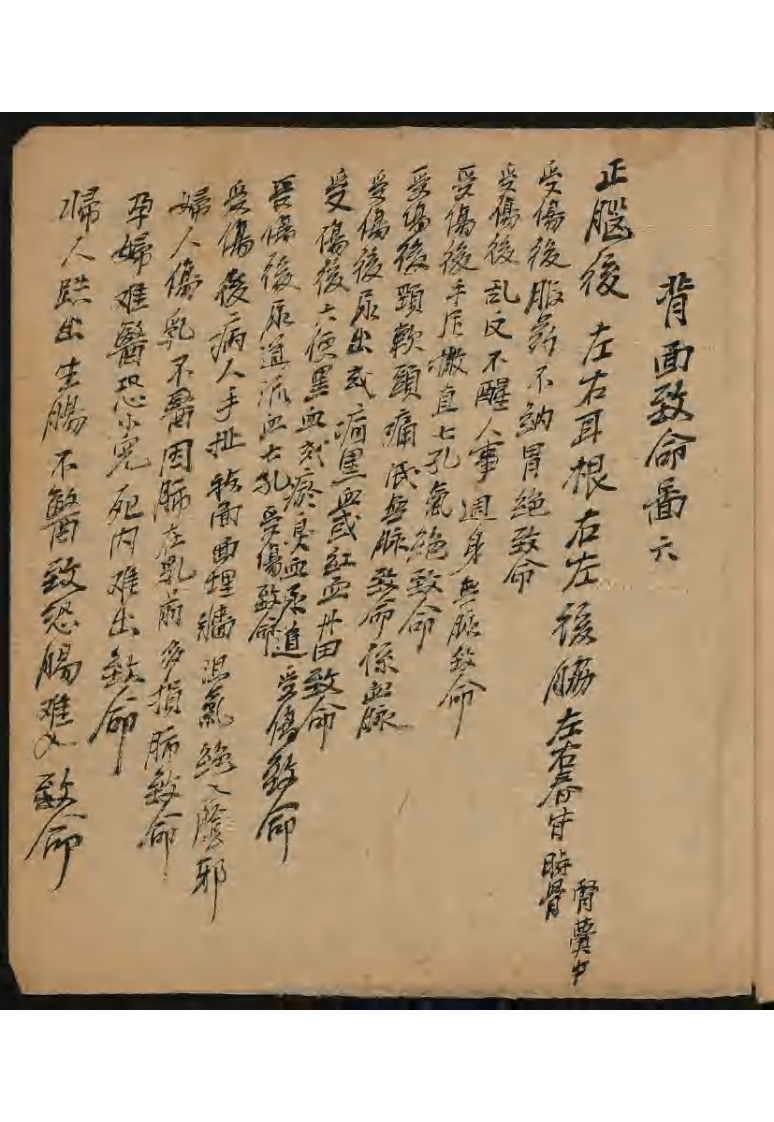 背面致命啚六
正腦後左右耳根右左後脇左右脊
腎囊中
受傷後服药不納胃絶致命
受傷後乱反不醒人事週身無脉致命
受傷後手足撒直七孔氣絶致命
受傷後頸軟頭痛氐無脉致命係血脉
受傷後尿出或痾黑血或紅血丹田致命
受傷後大便黑血或瘀臭血尿道受傷致命
受傷後尿道流血七孔受傷致命
受傷後病人手扯被面面埋牆湿氣絶入陰邪
婦人傷乳不醫因肺在乳前多損肺致命
孕婦难醫恐小兒死内难出致命
婦人跌出生腸不醫致恐腸难入致命